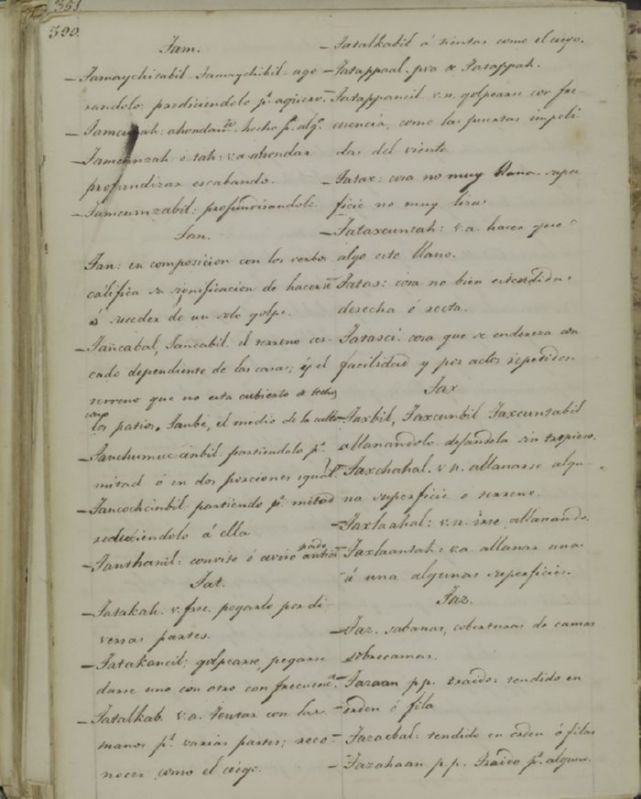 351
399.
Tam.
– Tamaychitabil Tamaychibil ago
randolo prediciendolo p.r aguero.
– Tamcunah: ahondam.to hecho p.r alg.n
– Tamcunzah: o tah: v.a. ahondar
profundizar escabando.
– Tamcumzabil: profundizandole.
Tan.
Tan: en composicion con los verbos
califica su significacion de hacerse
ó suceder de un solo golpe.
– Tancabal, Tancabil: el terreno cer
cado dependiente de las casas; y el
terreno que no esta cubierto de techo
como
los patios. Tanbé, el medio de la calle
– Tanchumuc cinbil partiendolo p.r
mitad ó en dos porciones igual.s
– Tancochcinbil partiendo p.r mitad
reduciendolo á ella
– Tanthanil: convite ó aviso antici
pado
Tat.
– Tatakah. v. frec. pegarlo por di
versas partes.
– Tatakancil: golpearse, pegarse
darse uno con otro con frecuenc.a
– Tatalkab. v.a. Tentar con las
manos p.r varias partes; reco
nocer como el ciego.
– Tatalkabil á tientas como el ciego.
– Tatappaal. pva de Tatappah.
– Tatappancil v.n. golpearse con fre
cuencia, como las puertas impeli
das del viento.
– Tatax: cosa no muy llana, super
ficie no muy lisa
– Tataxcunzah: v.a. hacer que
algo este llano.
Tatax: cosa no bien estendida
derecha ó recta.
Tataxci cosa que se endereza con
facilidad y por actos repetidos
Tax
– Taxbil, Taxcunbil Taxcunzabil
allanandolo dejandola sin tropiezo.
– Taxchahal. v.n. allanarse algu
na superficie o terreno.
– Taxlaahal: v.n. irse allanando.
– Taxlaantah: v.a. allanar una
á una algunas superficies.
Taz.
– Taz. sabanas, coberturas de camas
sobrecamas.
– Tazaan p.p. traido: tendido en
orden ó fila
– Tazacbal: tendido en orden ó filas
– Tazahaan p.p. Traido p.r alguno.